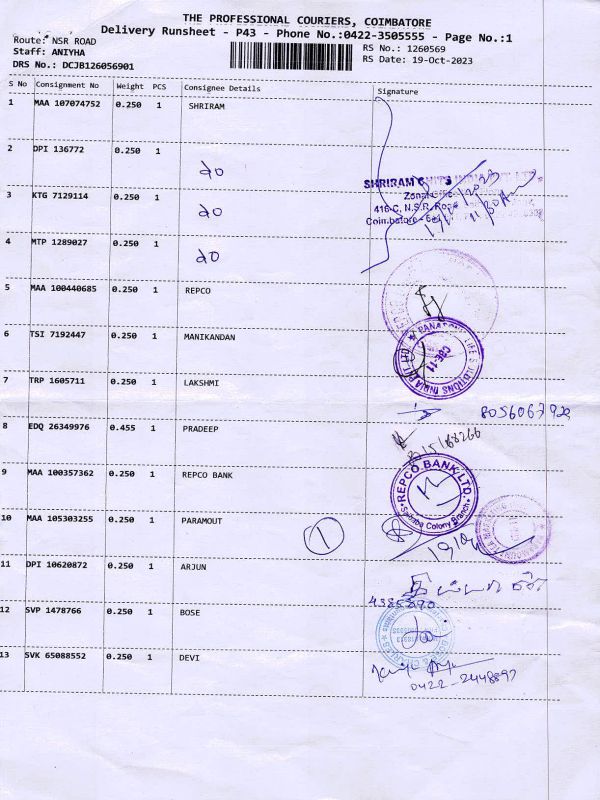 THE PROFESSIONAL COURIERS, COIMBATORE
Delivery Runsheet - P43 - Phone No.:0422-3505555 - Page No.:1
Route: NSR ROAD
RS No.: 1260569
Staff: ANIYHA
RS Date: 19-Oct-2023
DRS No.: DCJB126056901
S No Consignment No Weight PCS Consignee Details Signature
1 MAA 107074752 0.250 1 SHRIRAM
2 DPI 136772 0.250 1
do
SHRIRAM CHITS
3 KTG 7129114 0.250 1
do
416-C, N.S.R. Road
Coimbatore
4 MTP 1289027 0.250 1
do
5 MAA 100440685 0.250 1 REPCO
6 TSI 7192447 0.250 1 MANIKANDAN
PANASONIC LIFE SOLUTIONS INDIA PVT LTD
CBE-11
7 TRP 1605711 0.250 1 LAKSHMI
8 EDQ 26349976 0.455 1 PRADEEP
9 MAA 100357362 0.250 1 REPCO BANK
REPCO BANK LTD.
Saibaba Colony Branch
10 MAA 105303255 0.250 1 PARAMOUT
1
11 DPI 10620872 0.250 1 ARJUN
12 SVP 1478766 0.250 1 BOSE
13 SVK 65088552 0.250 1 DEVI
0422-2448897